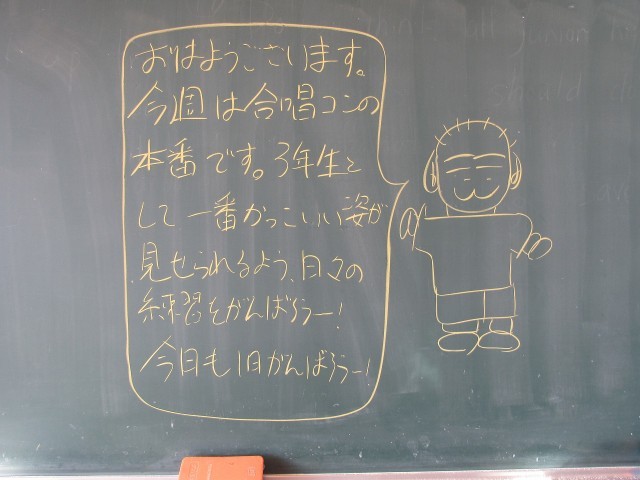 おはようございます。
今週は合唱コンの
本番です。3年生と
して一番かっこいい姿が
見せられるよう、日々の
練習をがんばろうー!
今日も1日がんばろうー!